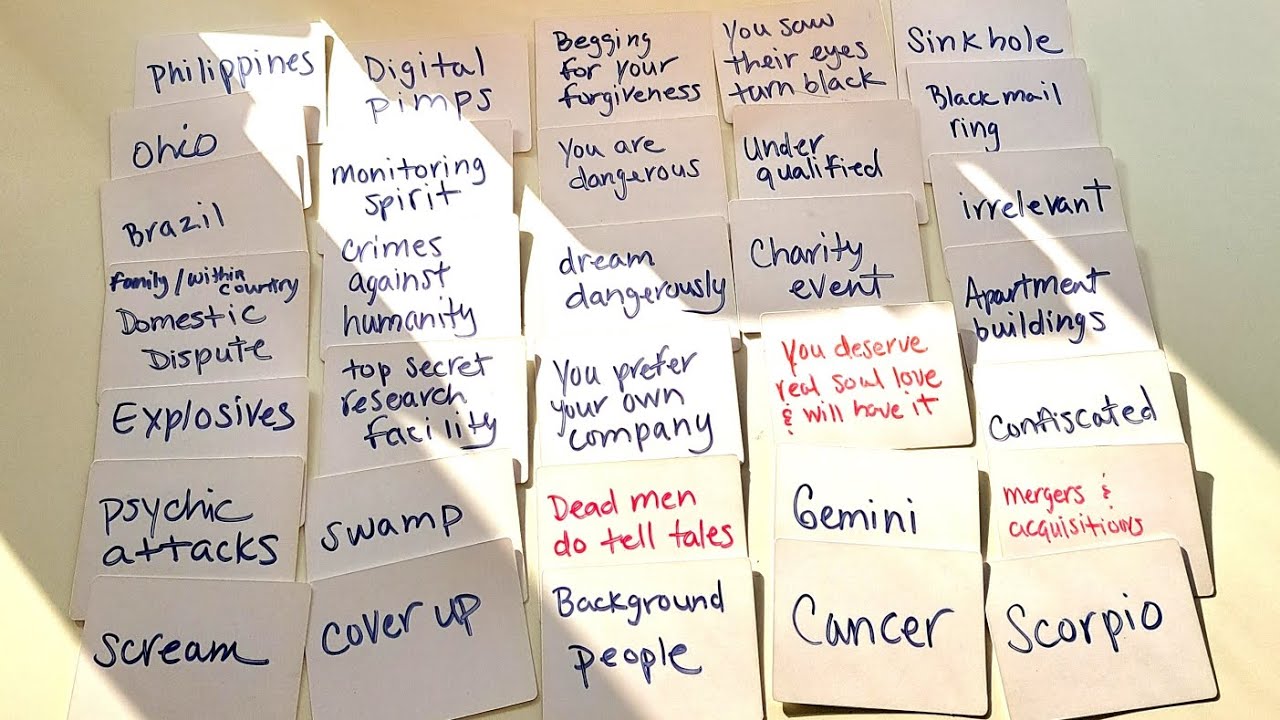 Philippines
Ohio
Brazil
family/within
country
Domestic
Dispute
Explosives
psychic
attacks
scream
Digital
pimps
monitoring
spirit
crimes
against
humanity
top secret
research
facility
swamp
cover up
Begging
for your
forgiveness
You are
dangerous
dream
dangerously
You prefer
your own
company
Dead men
do tell tales
Background
people
You saw
their eyes
turn black
Under
qualified
Charity
event
You deserve
real soul love
& will have it
Gemini
Cancer
Sinkhole
Blackmail
ring
irrelevant
Apartment
buildings
Confiscated
mergers &
acquisitions
Scorpio